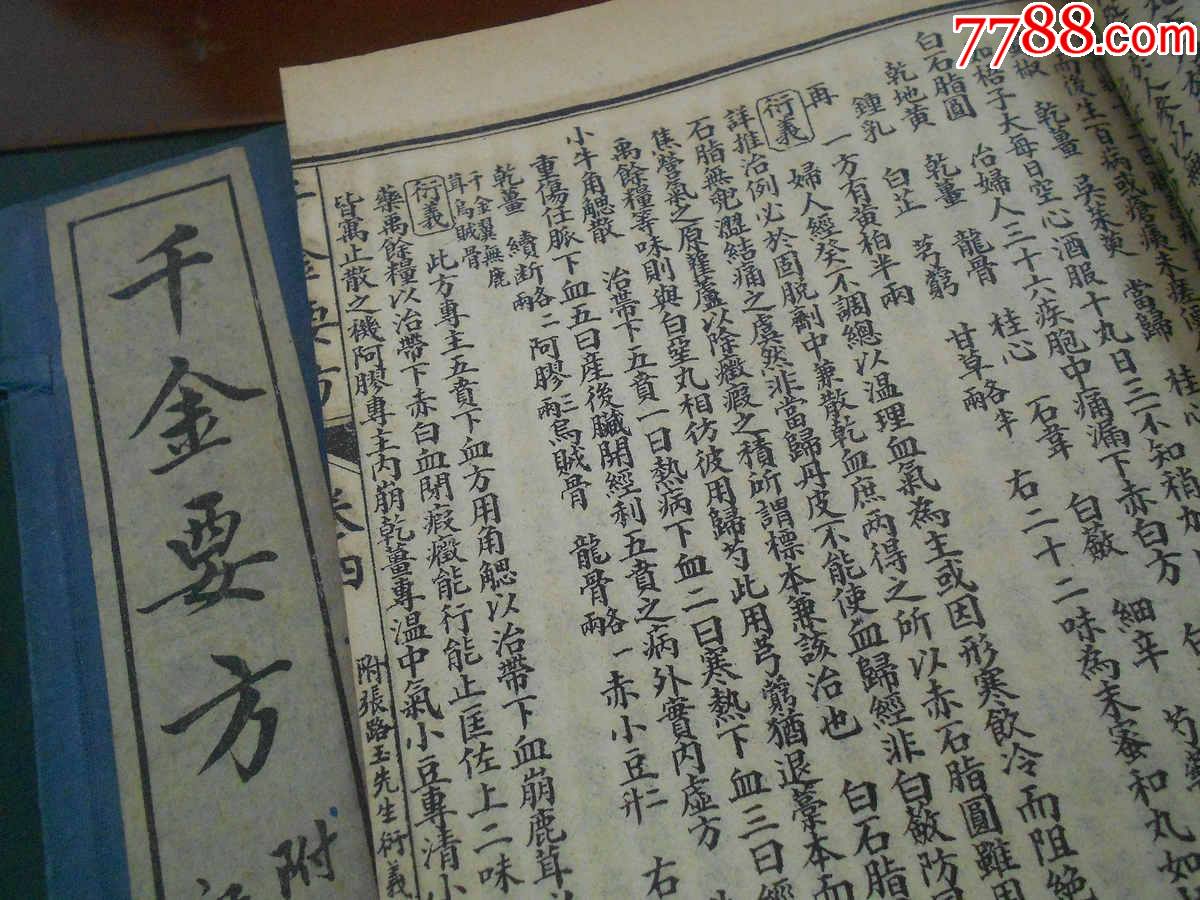 7788.com
千金要方
附
桂心
後生百病或瘡痍未瘥
乾薑 吳茱萸 當歸
和梧子大每日空心酒服十丸日三不知稍加
白石脂圓 治婦人三十六疾胞中痛漏下赤白方
乾地黃 乾薑 龍骨 桂心 石韋 白蘞 細辛 芍藥
鍾乳 白芷 芎藭 甘草兩 各半 右二十二味為末蜜和丸如
再 一方有黃柏半兩
衍義 婦人經癸不調總以溫理血氣為主或因形寒飲冷而阻絕
詳推治例必於固脫劑中兼散乾血庶兩得之所以赤石脂圓雖用
石脂無虼澀結痛之虞然非當歸丹皮不能使血歸經非白蘞防
焦營氣之原雚蘆以除癥瘕之積所謂標本兼該治也 白石脂
禹餘糧等味則與白堊丸相彷彼用歸芍此用芎藭猶退藁本而
小牛角䚡散 治帶下五賁一曰熱病下血二曰寒熱下血三曰經
重傷任脈下血五曰産後臟開經利五賁之病外實內虛方
乾薑 續斷各二兩 阿膠三兩 烏賊骨 龍骨各一兩 赤小豆二升 右
千金翼無鹿茸烏賊骨
衍義 此方專主五賁下血方用角䚡以治帶下血崩鹿茸
藥禹餘糧以治帶下赤白血閉瘕癥能行能止匡佐上二味
皆寓止散之機阿膠專主內崩乾薑專溫中氣小豆專清小
千金要方 卷四 附張路玉先生衍義